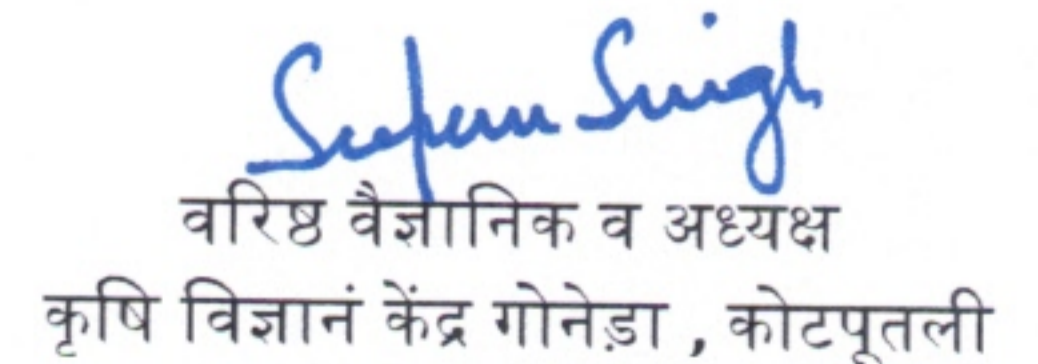 Singh
वरिष्ठ वैज्ञानिक व अध्यक्ष
कृषि विज्ञानं केंद्र गोनेड़ा , कोटपूतली